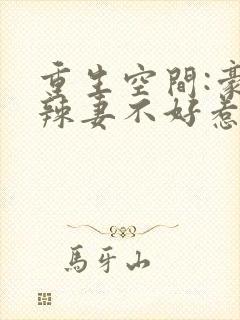 重生空間:豪
辣妻不好惹
馬牙山